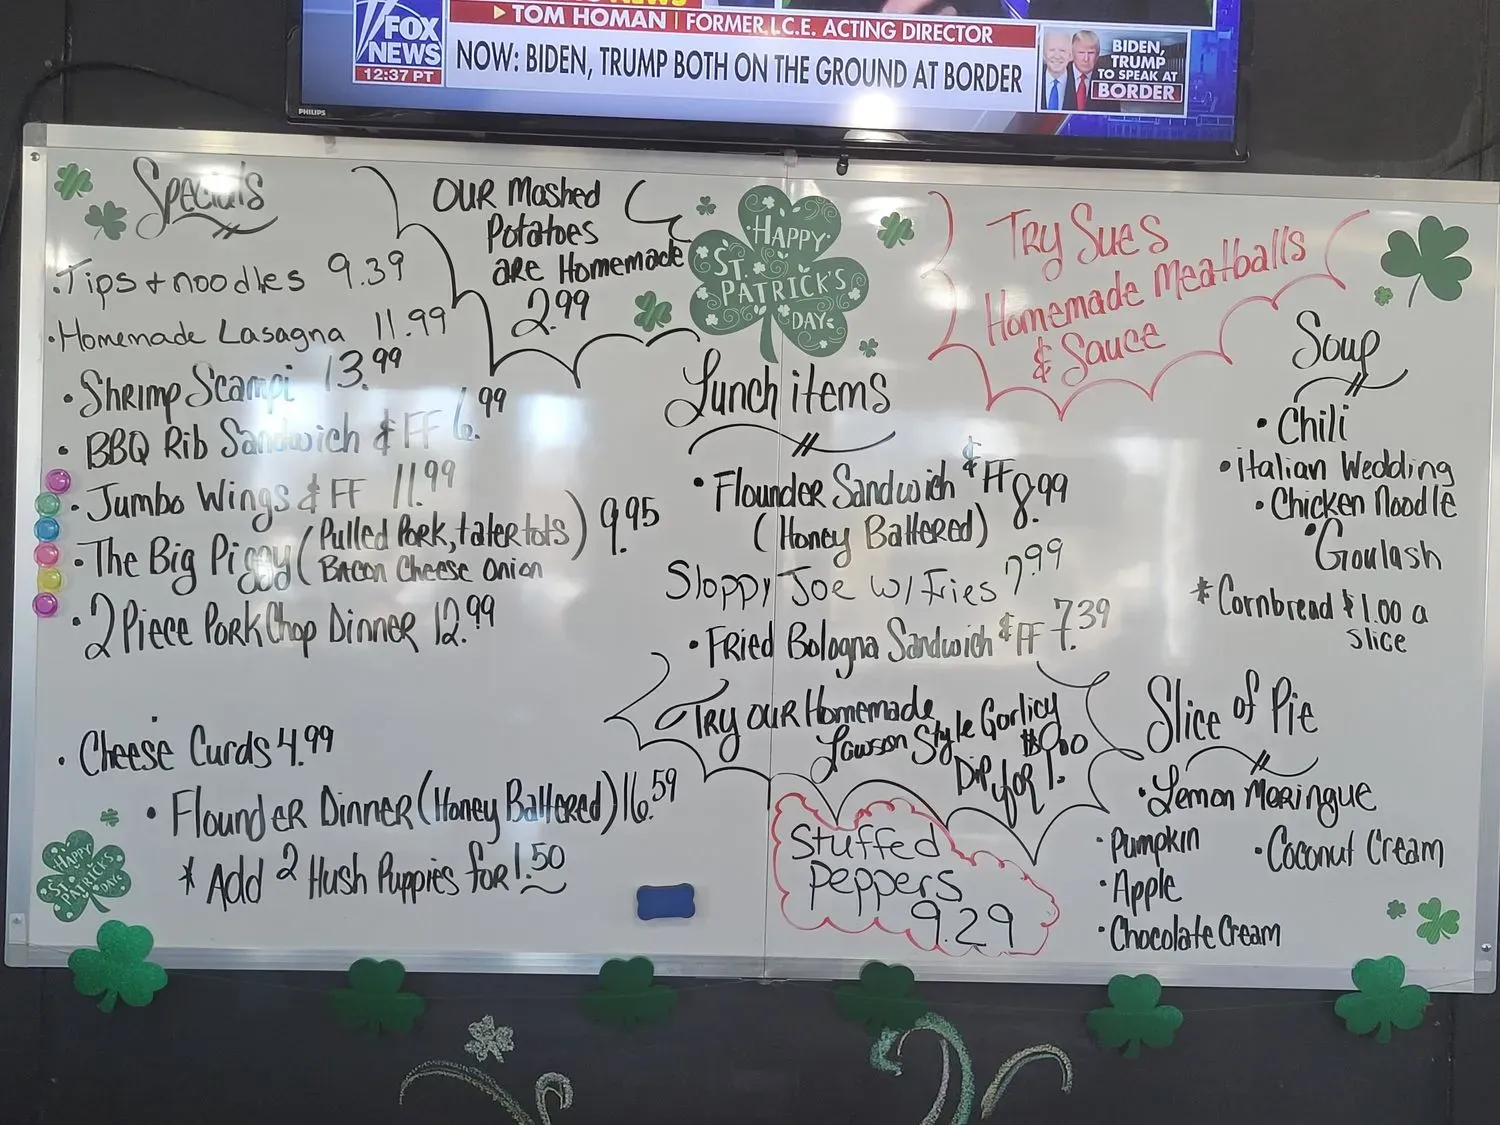 FOX
NEWS
12:37 PT
TOM HOMAN | FORMER I.C.E. ACTING DIRECTOR
NOW: BIDEN, TRUMP BOTH ON THE GROUND AT BORDER
BIDEN,
TRUMP
TO SPEAK AT
BORDER
PHILIPS
Specials
• Tips + noodles 9.39
• Homemade Lasagna 11.99
• Shrimp Scampi 13.99
• BBQ Rib Sandwich & FF 6.99
• Jumbo Wings & FF 11.99
• The Big Piggy (Pulled Pork, tater tots) 9.95
Bacon Cheese onion
• 2 Piece Pork Chop Dinner 12.99
• Cheese Curds 4.99
• Flounder Dinner (Honey Battered) 16.59
* Add 2 Hush Puppies for 1.50
OUR Mashed
Potatoes
are Homemade
2.99
HAPPY
ST.
PATRICK'S
DAY
Lunch items
• Flounder Sandwich & FF 8.99
(Honey Battered)
Sloppy Joe w/ Fries 7.99
• Fried Bologna Sandwich & FF 7.39
Try OUR Homemade
Lawson Style Garlicy
Dip for
Stuffed
Peppers
9.29
Try Sues
Homemade Meatballs
& Sauce
Soup
• Chili
• italian Wedding
• Chicken Noodle
• Goulash
* Cornbread $1.00 a
slice
Slice of Pie
• Lemon Meringue
• Pumpkin
• Coconut Cream
• Apple
• Chocolate Cream
HAPPY
ST.
PATRICK'S
DAY